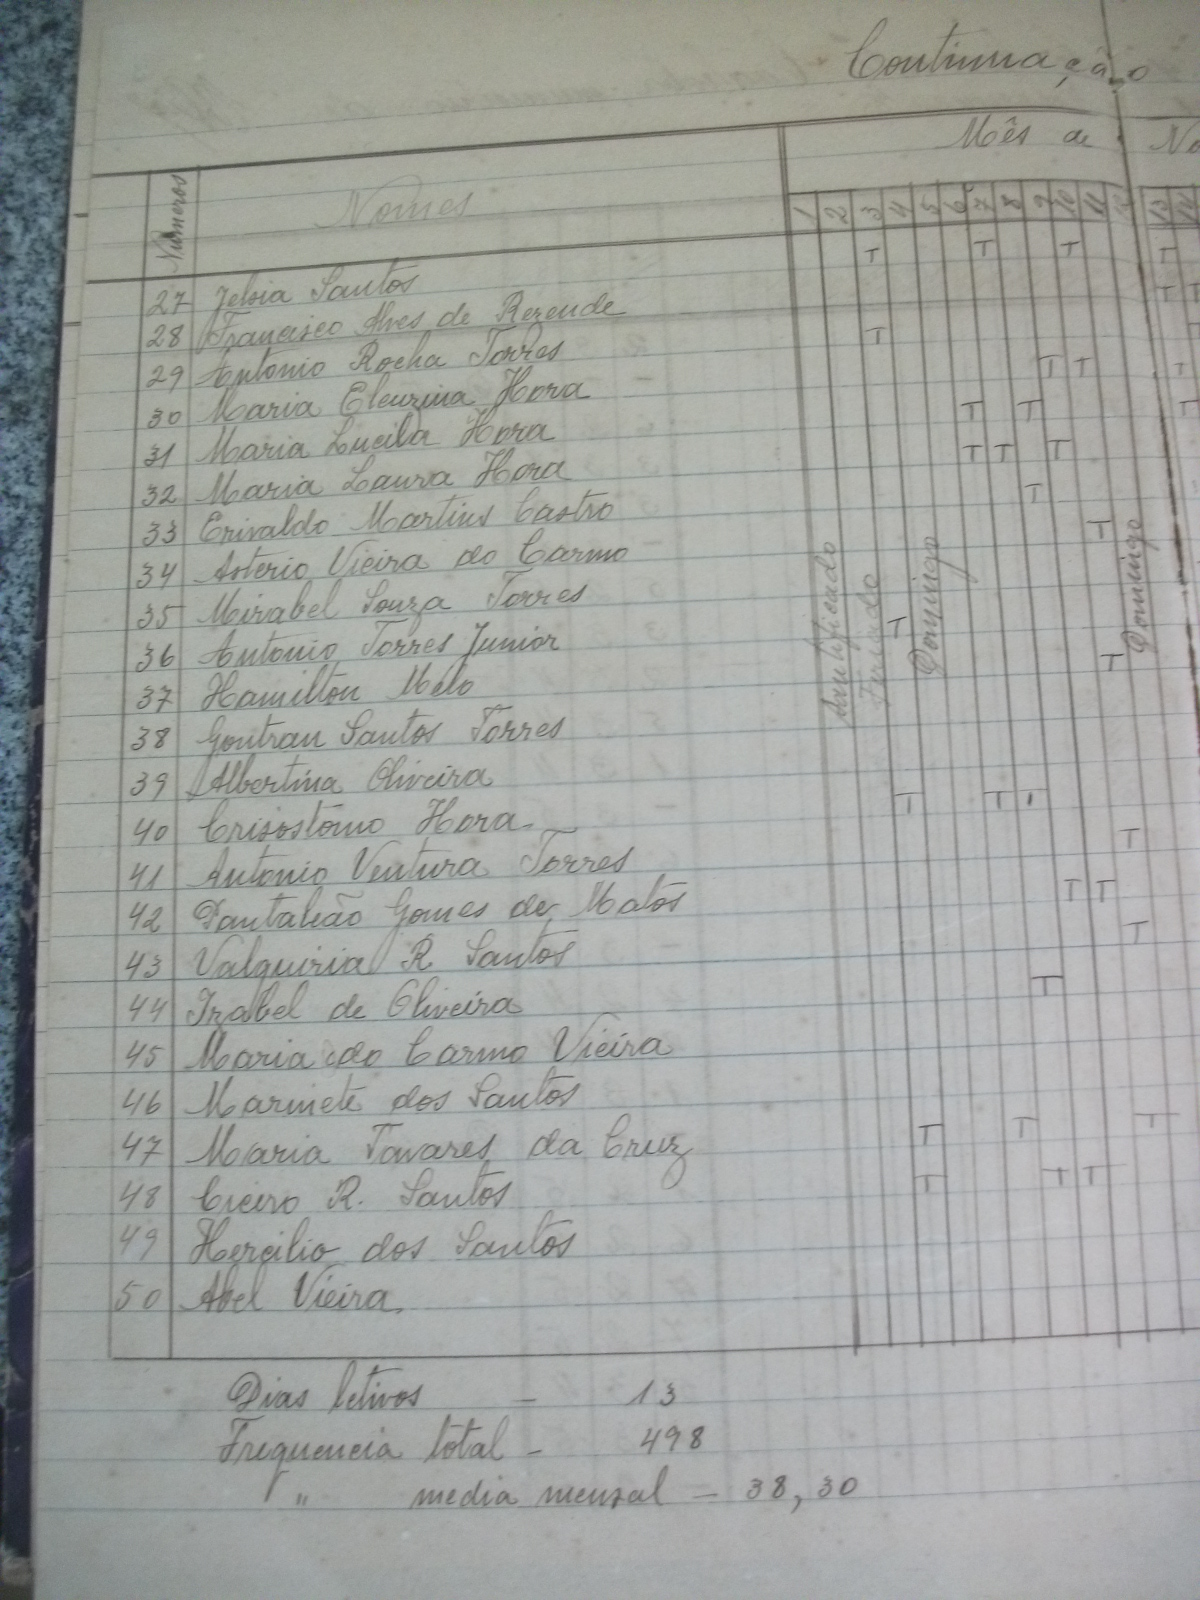 Continuação
Mês de No
Números Nomes 1 2 3 4 5 6 7 8 9 10 11 12 13 14
27 Santos T T T T
28 Francisco Alves de Rezende T T
29 Antonio Rocha Torres T
30 Maria Eleuzina Hora T T T
31 Maria Lucila Hora T T T
32 Maria Laura Hora T T T
33 Erivaldo Martins Castro T
34 Asterio Vieira do Carmo T
35 Mirabel Souza Torres
36 Antonio Torres Junior T
37 Hamilton Melo T
38 Gontran Santos Torres
39 Albertina Oliveira
40 Crisostomo Hora T T T
41 Antonio Ventura Torres T
42 Pantaleão Gomes de Matos T T
43 Valquiria R. Santos T
44 Izabel de Oliveira T
45 Maria do Carmo Vieira
46 Marinete dos Santos
47 Maria Tavares da Cruz T T T
48 Cicero R. Santos T T T
49 Hercilio dos Santos
50 Abel Vieira.
Santificado
Feriado
Domingo
Domingo
Dias letivos - 13
Frequencia total - 498
" media mensal - 38,30